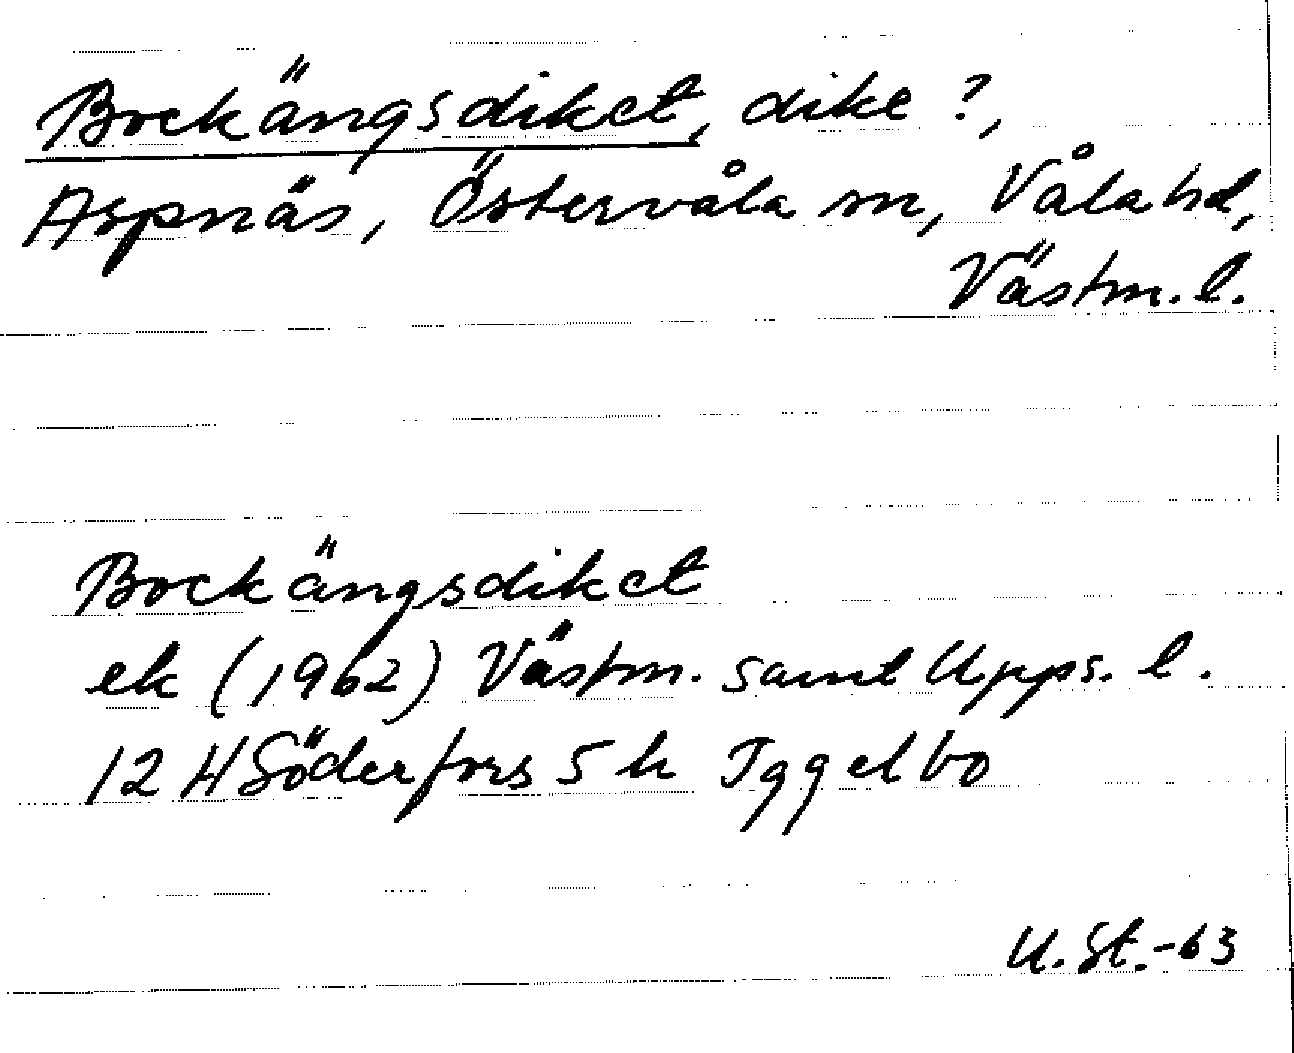 Bockängsdiket, dike ?,
Aspnäs, Östervåla sn, Våla hd,
Västm. l.
Bockängsdiket
ek (1962) Västm. samt Upps. l.
12 H Söderfors 5 h Iggelbo
U. St. -63